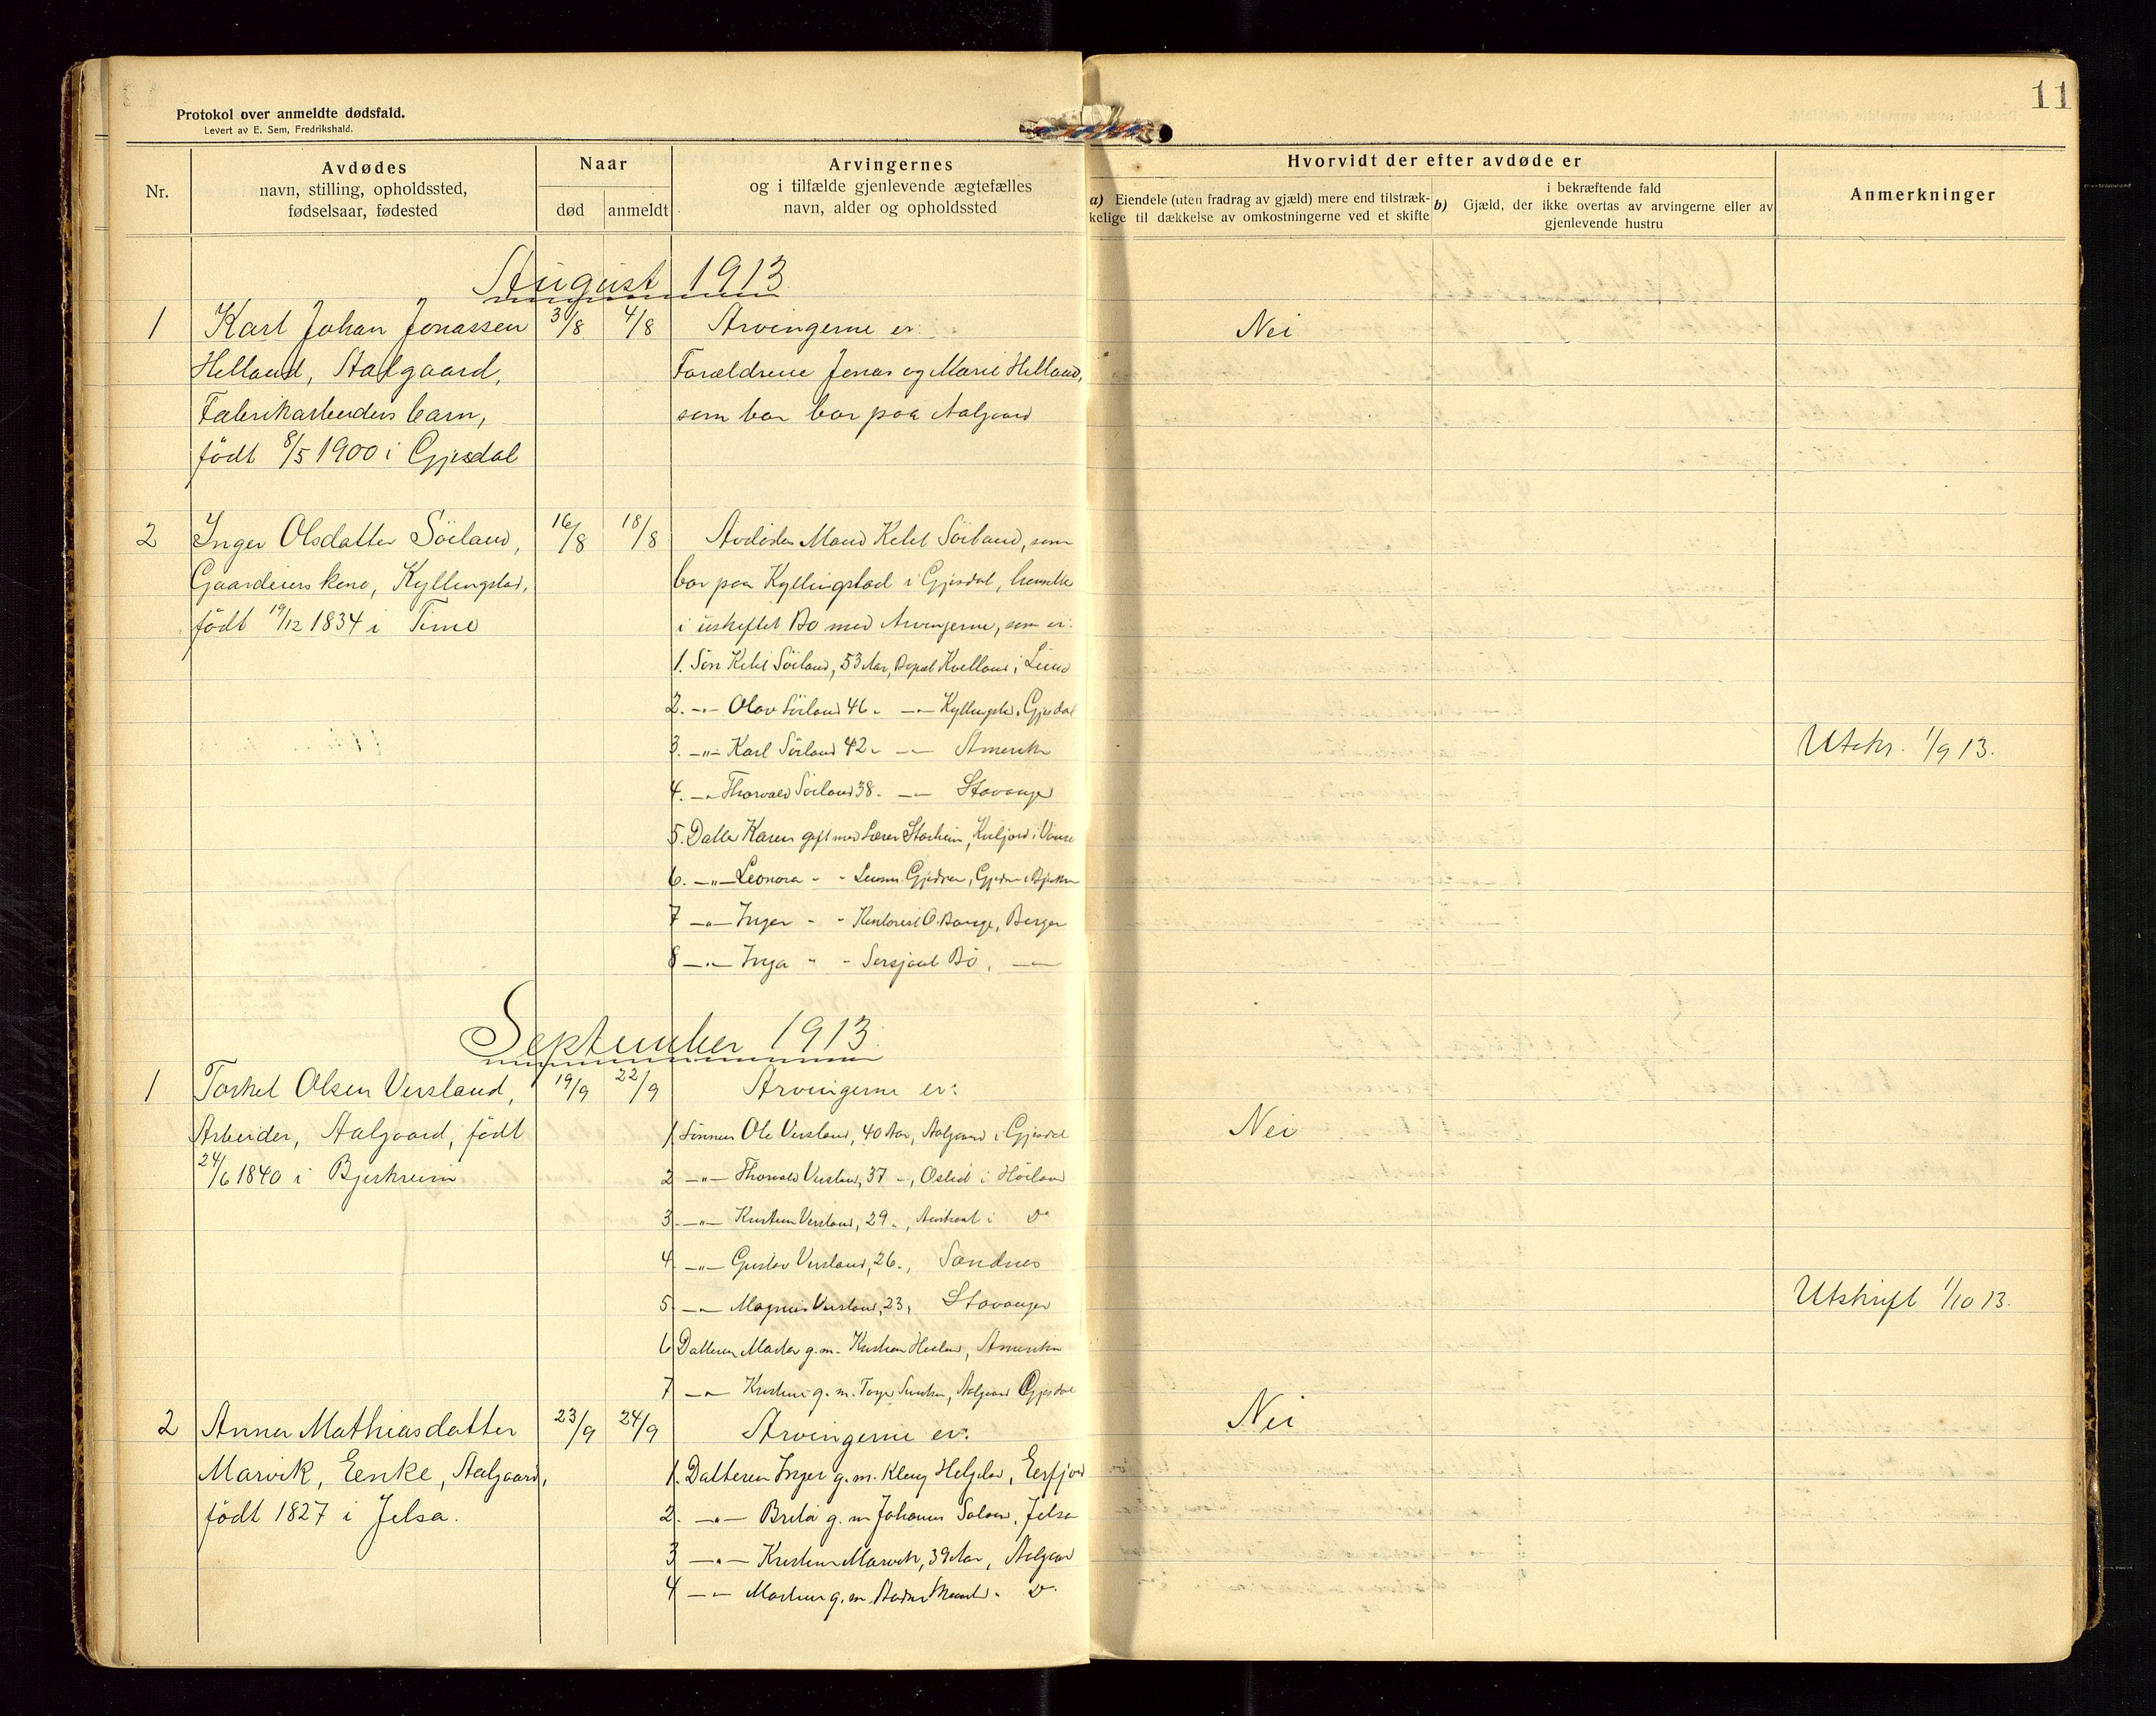 11
Protokol over anmeldte dødsfald.
Levert av E. Sem, Fredrikshald.
Nr.
Avdødes
navn, stilling, opholdssted,
fødselsaar, fødested
Naar
død
anmeldt
Arvingernes
og i tilfælde gjenlevende ægtefælles
navn, alder og opholdssted
Hvorvidt der efter avdøde er
a) Eiendele (uten fradrag av gjæld) mere end tilstræk-
kelige til dækkelse av omkostningerne ved et skifte
b) i bekræftende fald
Gjæld, der ikke overtas av arvingerne eller av
gjenlevende hustru
Anmerkninger
August 1913
1 Karl Johan Jonassen 3/8 4/8 Arvingerne er: Nei
Helland, Aalgaard, Forældrene Jonas og Marie Helland,
Fabrikarbeiders barn, som bor bor paa Aalgaard
født 8/5 1900 i Gjesdal
2 Inger Olsdatter Söiland, 16/8 18/8 Avdødes Mand Ketel Söiland, som
Gaardeiers kone, Kyllingstad, bor paa Kyllingstad i Gjesdal,
født 19/12 1834 i Time i uskiftet Bo med Arvingerne, som er:
1. Sön Ketel Söiland, 53 Aar, Bopæl Kvelland i Lund
2. -"- Olav Söiland 46 - -"- Kyllingstd. Gjesdal
3. -"- Karl Söiland 42 - -"- Amerika
Utskr. 1/9 13.
4. -"- Thorvald Söiland 38 - -"- Stavanger
5. Datter Karen gift med Lærer Storheim, i Vanse
6. -"- Leonora - - Gjedrem, Gjedrem i Bjerkrm
7 -"- Inger - - Kontorist O. Bauge, Bergen
8 -"- Inga - - Sersjant Bö, -"-
September 1913
1 Torkel Olsen Versland, 19/9 22/9 Arvingerne er:
Arbeider, Aalgaard, født 1 Sönnen Ole Versland, 40 Aar, Aalgaard i Gjesdal Nei
24/6 1840 i Bjerkreim 2 -"- Thorvald Versland, 37 -, Öslid i Höiland
3 -"- Kristian Versland, 29 -, Austraat i Do
4 -"- Gustav Versland, 26 -, Sandnes
5 -"- Magnus Versland, 23, Stavanger
Utskrift 1/10 13.
6 Datteren Marta g.m. Kristian, Amerika
7 -"- Kristine g.m. Torger, Aalgaard Gjesdal
2 Anna Mathiasdatter 23/9 24/9 Arvingerne er: Nei
Marvik, Enke, Aalgaard, 1. Datteren Inger g.m. Kleng Helgeland, Erfjord
født 1827 i Jelsa. 2. -"- Brita g.m. Johannes, Jelsa
3 -"- Kristine Marvik, 39 Aar, Aalgaard
4 -"- g.m. Do